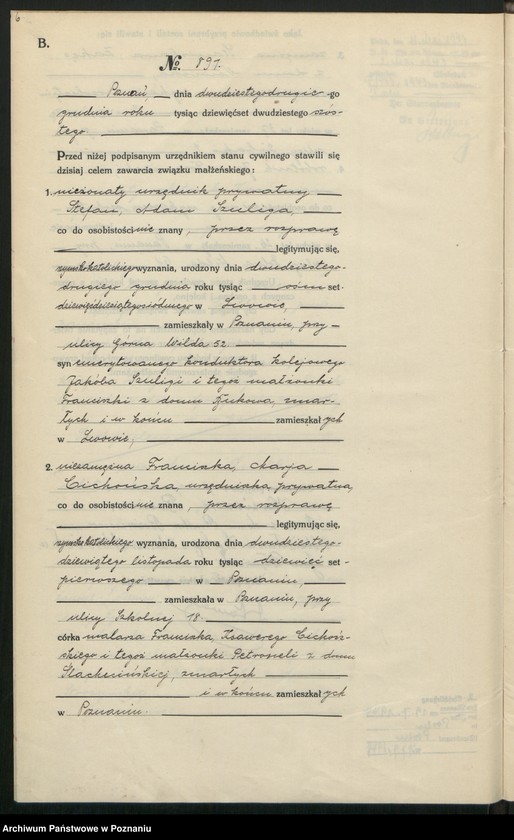 6
B.
No. 891.
Poznań dnia dwudziestegodrugie -go
grudnia roku tysiąc dziewięćset dwudziestego szós-
tego.
Przed niżej podpisanym urzędnikiem stanu cywilnego stawili się
dzisiaj celem zawarcia związku małżeńskiego:
1. nieżonaty urzędnik prywatny
Stefan, Adam Szuliga,
co do osobistości nie znany, przez rozprawę
legitymując się,
rzymskokatolickiego wyznania, urodzony dnia dwudziestego-
drugiego grudnia roku tysiąc ośm set-
dziewięćdziesiątegosiódmego w Lwowie,
zamieszkały w Poznaniu, przy
ulicy Górna Wilda 52
syn emerytowanego konduktora kolejowego
Jakóba Szuligi i tegoż małżonki
Franciszki z domu Kukowa, zmar-
łych i w końcu zamieszkał ych
w Lwowie,
2. niezamężna Franciszka, Marja
Cichońska, urzędniczka prywatna,
co do osobistości nie znana, przez rozprawę
legitymując się,
rzymskokatolickiego wyznania, urodzona dnia dwudziestego-
dziewiątego listopada roku tysiąc dziewięć set-
pierwszego w Poznaniu,
zamieszkała w Poznaniu, przy
ulicy Szkolnej 18.
córka malarza Franciszka Ksawerego Cichoń-
skiego i tegoż małżonki Petroneli z domu
zmarłych
i w końcu zamieszkał ych
w Poznaniu.
Archiwum Państwowe w Poznaniu